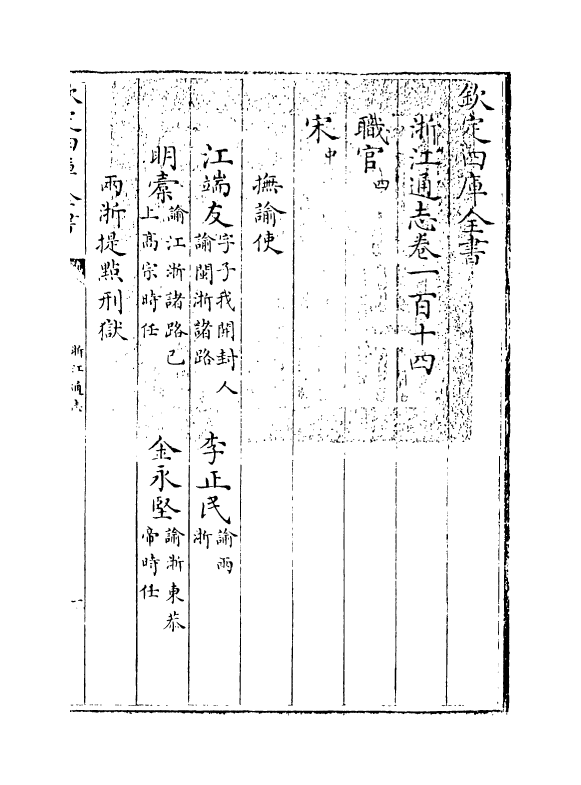 欽定四庫全書
浙江通志卷一百十四
職官四
宋中
撫諭使
江端友字子我開封人諭閩浙諸路 李正民諭兩浙
明橐諭江浙諸路已上高宗時任 金永堅諭浙東恭帝時任
兩浙提點刑獄
欽定四庫全書 浙江通志 一